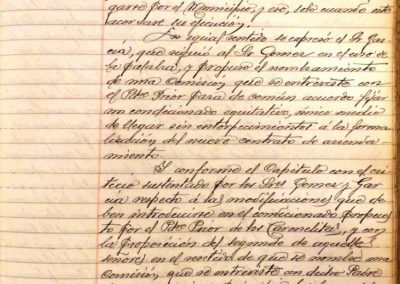 garse por el Municipio y eso, solo cuando este
acordase su ejecución.
En igual sentido se expresó el Sr. Gar-
cía, que siguió al Sr. Gomez en el uso de
la palabra, y propuso el nombramiento
de una Comision, que se entreviste con
el Pdre. Prior para de común acuerdo fijar
un condicionado equitativo, único medio
de llegar sin entorpecimientos á la forma-
lización del nuevo contrato de arrenda
miento.
Y conforme el Capítulo con el cri-
terio sustentado por los Sres. Gomez y Gar-
cía respecto á las modificaciones que de-
ben introducirse en el condicionado propues-
to por el Pdre. Prior de los Carmelitas, y con
la proposición del segundo de aquellos
señores en el sentido de que se nombre una
Comisión, que se entreviste con dicho Padre